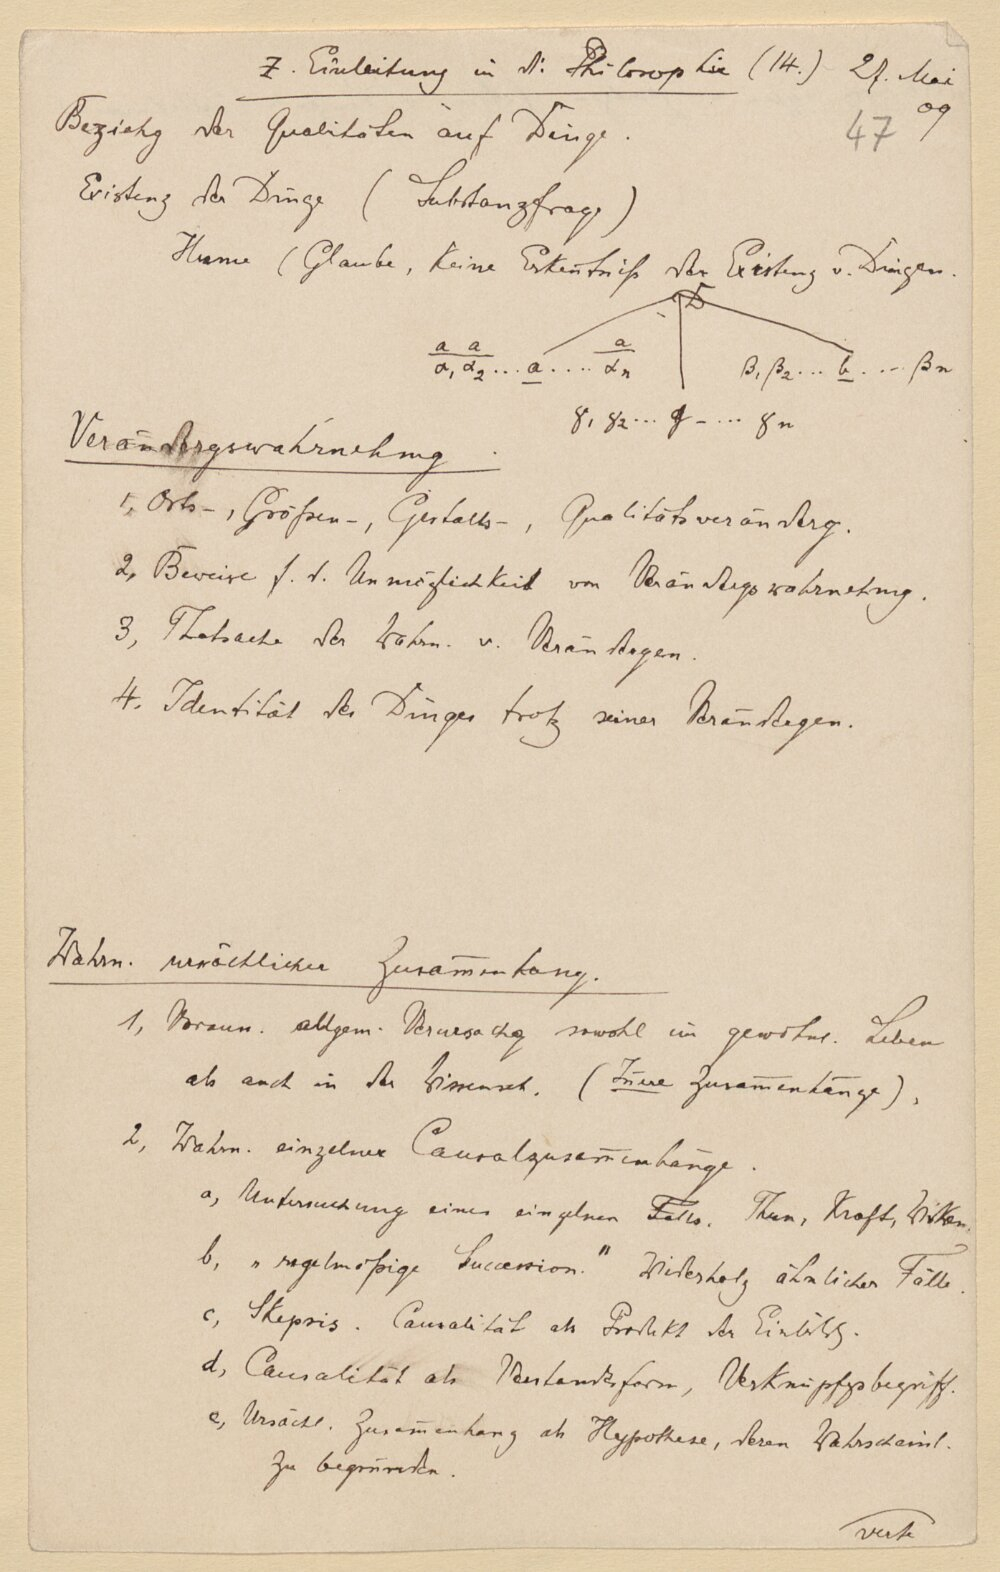 Z. Einleitung in d. Philosophie (14.) 27. Mai
09
47
Beziehg der Qualitäten auf Dinge.
Existenz der Dinge (Substanzfrage)
Hume (Glaube, keine Erkentniß der Existenz v. Dingen.
D
a/α₁ a/α₂ ... a .... a/αn β₁ β₂ ... b ... βn
γ₁ γ₂ ... g - ... γn
Verändergswahrnehmung
1, Orts-, Größen-, Gestalts-, Qualitätsveränderg.
2, Beweise f. d. Unmöglichkeit von Verändergswahrnehmg.
3, Thatsache der Wahrn. v. Verändergen.
4. Identität des Dinges trotz seiner Verändergen.
Wahrn. ursächlicher Zusam̄enhang.
1, Vorauss. allgem. Verursachg sowohl im gewöhnl. Leben
als auch in der Wissensch. (Iñere Zusam̄enhänge),
2, Wahrn. einzelner Causalzusam̄enhänge.
a, Untersuchung eines einzelnen Falls. Thun, Kraft, Wirken.
b, „regelmäßige Succession." Widerholg ähnlicher Fälle.
c, Skepsis. Causalität als Produkt der Einbildg.
d, Causalität als Verstandsform, Verknüpfgsbegriff.
e, Ursächl. Zusam̄enhang als Hypothese, deren Wahrscheinl.
zu begründen.
verte